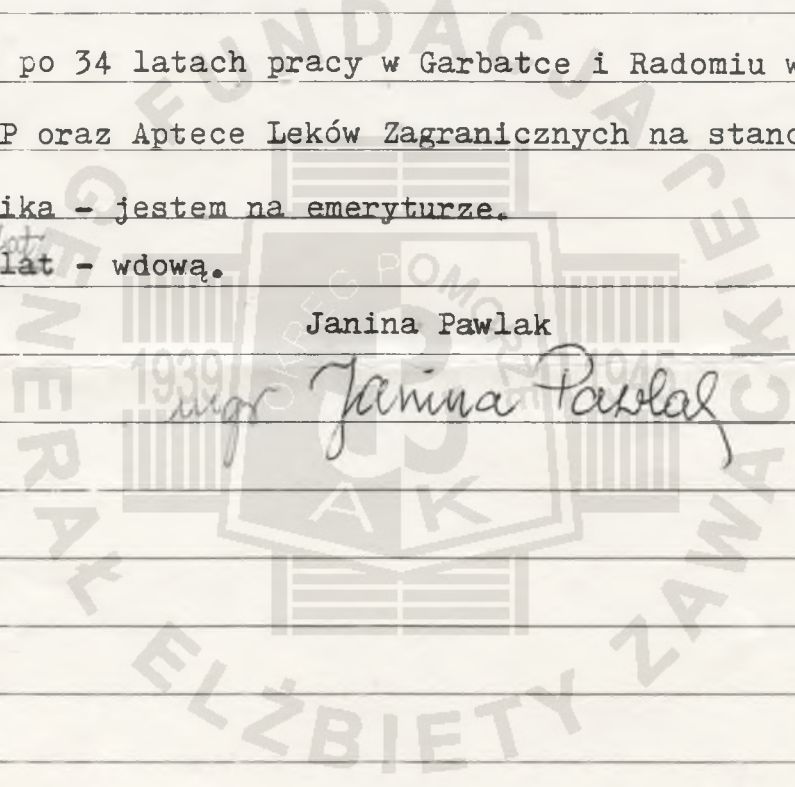 po 34 latach pracy w Garbatce i Radomiu w
P oraz Aptece Leków Zagranicznych na stano
ika - jestem na emeryturze.
lat - wdową.
Janina Pawlak
mgr Janina Pawlak
FUNDACJA GENERAŁ ELŻBIETY ZAWACKIEJ
OKRĘG POMORZE
1939 1945
AK